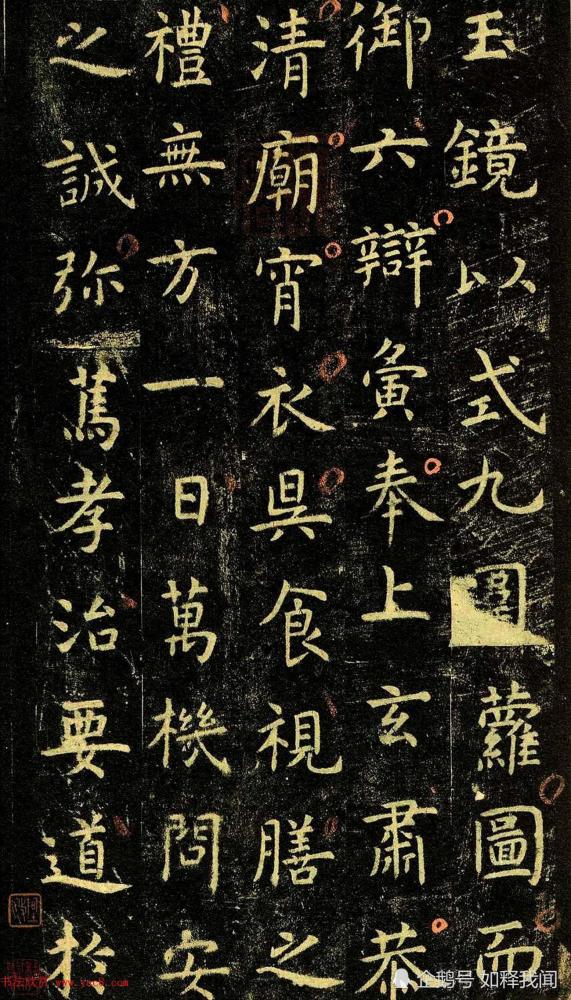 玉鏡以式九圍蘿圖而
御六辯寅奉上玄肅恭
清廟宵衣昃食視膳之
禮無方一日萬機問安
之誠弥篤孝治要道於
书法欣赏 www.yac8.com
企鹅号 如释我闻